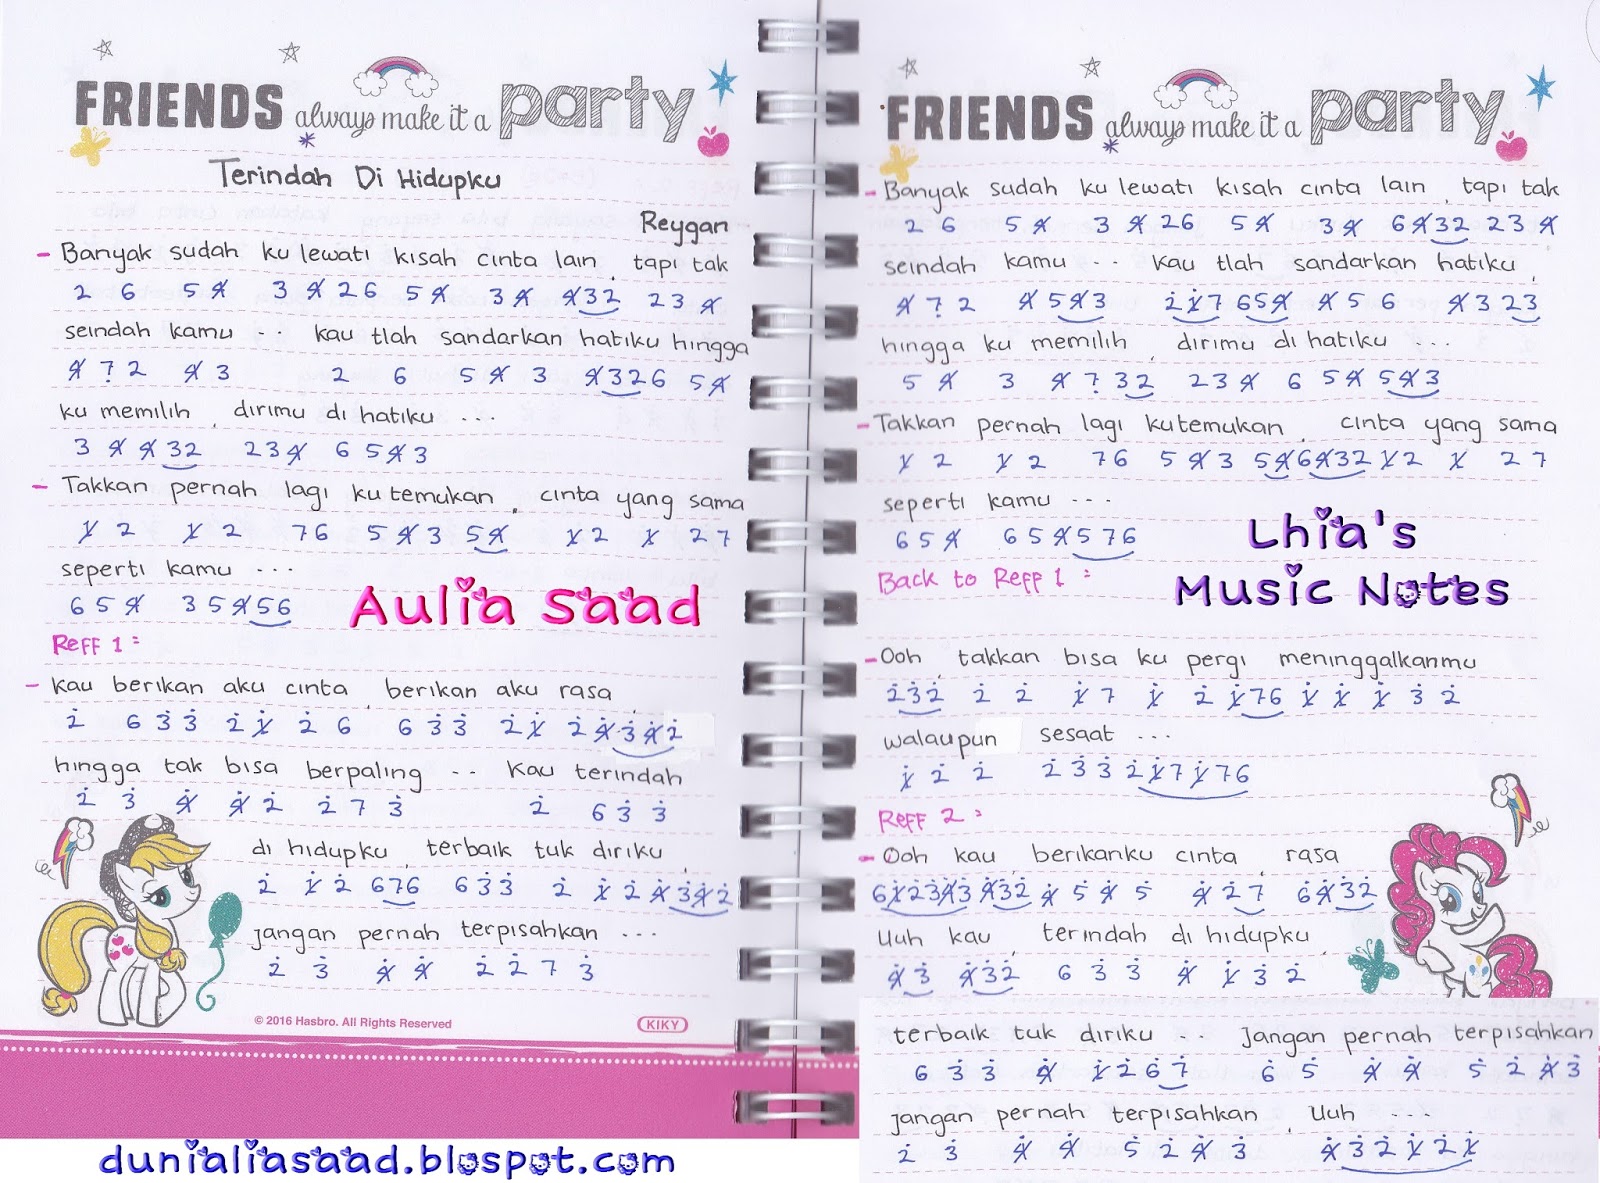 FRIENDS always make it a party
Terindah Di Hidupku
Reygan
- Banyak sudah ku lewati kisah cinta lain, tapi tak
2 6 5 4̸ 3 4̸ 2 6 5 4̸ 3 4̸ 4̸ 3 2 2 3 4̸
seindah kamu -- kau tlah sandarkan hatiku hingga
4̸ 7̣ 2 4̸ 3 2 6 5 4̸ 3 4̸ 3 2 6 5 4̸
ku memilih, dirimu di hatiku ...
3 4̸ 4̸ 3 2 2 3 4̸ 6 5 4̸ 3
- Takkan pernah lagi ku temukan, cinta yang sama
1̸ 2 1̸ 2 7 6 5 4̸ 3 5 4̸ 1̸ 2 1̸ 2 7
seperti kamu ...
6 5 4̸ 3 5 4̸ 5 6
Aulia Saad
Reff 1 :
- Kau berikan aku cinta, berikan aku rasa,
2̇ 6 3̇ 3̇ 2̇ 1̸̇ 2̇ 6 6 3̇ 3̇ 2̇ 1̸̇ 2̇ 4̸̇ 3̇ 4̸̇ 2̇
hingga tak bisa berpaling -- Kau terindah
2̇ 3̇ 4̸̇ 4̸̇ 2̇ 2̇ 7 3̇ 2̇ 6 3̇ 3̇
di hidupku, terbaik tuk diriku,
2̇ 1̸̇ 2̇ 6 7 6 6 3̇ 3̇ 2̇ 1̸̇ 2̇ 4̸̇ 3̇ 4̸̇ 2̇
jangan pernah terpisahkan ...
2̇ 3̇ 4̸̇ 4̸̇ 2̇ 2̇ 7 3̇
© 2016 Hasbro. All Rights Reserved
KIKY
dunialiasaad.blogspot.com
FRIENDS always make it a party
- Banyak sudah ku lewati kisah cinta lain, tapi tak
2 6 5 4̸ 3 4̸ 2 6 5 4̸ 3 4̸ 6 4̸ 3 2 2 3 4̸
seindah kamu -- kau tlah sandarkan hatiku,
4̸ 7̣ 2 4̸ 5 4̸ 3 2̇ 1̸̇ 7 6 5 4̸ 4̸ 5 6 4̸ 3 2 3
hingga ku memilih, dirimu di hatiku ...
5 4̸ 3 4̸ 7̣ 3 2 2 3 4̸ 6 5 4̸ 5 4̸ 3
- Takkan pernah lagi kutemukan, cinta yang sama
1̸ 2 1̸ 2 7 6 5 4̸ 3 5 4̸ 6 4̸ 3 2 1̸ 2 1̸ 2 7
seperti kamu ...
6 5 4̸ 6 5 4̸ 5 7 6
Lhia's
Music Notes
Back to Reff 1 :
- Ooh, takkan bisa ku pergi meninggalkanmu
2̇ 3̇ 2̇ 2̇ 2̇ 1̸̇ 7 1̸̇ 2̇ 1̸̇ 7 6 1̸̇ 1̸̇ 1̸̇ 3̇ 2̇
walaupun sesaat ...
1̸̇ 2̇ 2̇ 2̇ 3̇ 3̇ 2̇ 1̸̇ 7 1̸̇ 7 6
Reff 2 :
- Ooh kau, berikanku cinta, rasa
6 1̸̇ 2̇ 3̇ 4̸̇ 3̇ 4̸̇ 3̇ 2̇ 4̸̇ 5̇ 4̸̇ 5̇ 4̸̇ 2̇ 7 6 4̸̇ 3̇ 2̇
Uuh kau, terindah di hidupku,
4̸̇ 3̇ 4̸̇ 3̇ 2̇ 6 3̇ 3̇ 4̸̇ 1̸̇ 3̇ 2̇
terbaik tuk diriku -- Jangan pernah terpisahkan
6 3̇ 3̇ 4̸̇ 1̸̇ 2̇ 6 7̇ 6̇ 5̇ 4̸̇ 4̸̇ 5̇ 2̇ 4̸̇ 3̇
jangan pernah terpisahkan, Uuh ....
2̇ 3̇ 4̸̇ 4̸̇ 5̇ 2̇ 4̸̇ 3̇ 4̸̇ 3̇ 2̇ 1̸̇ 2̇ 1̸̇